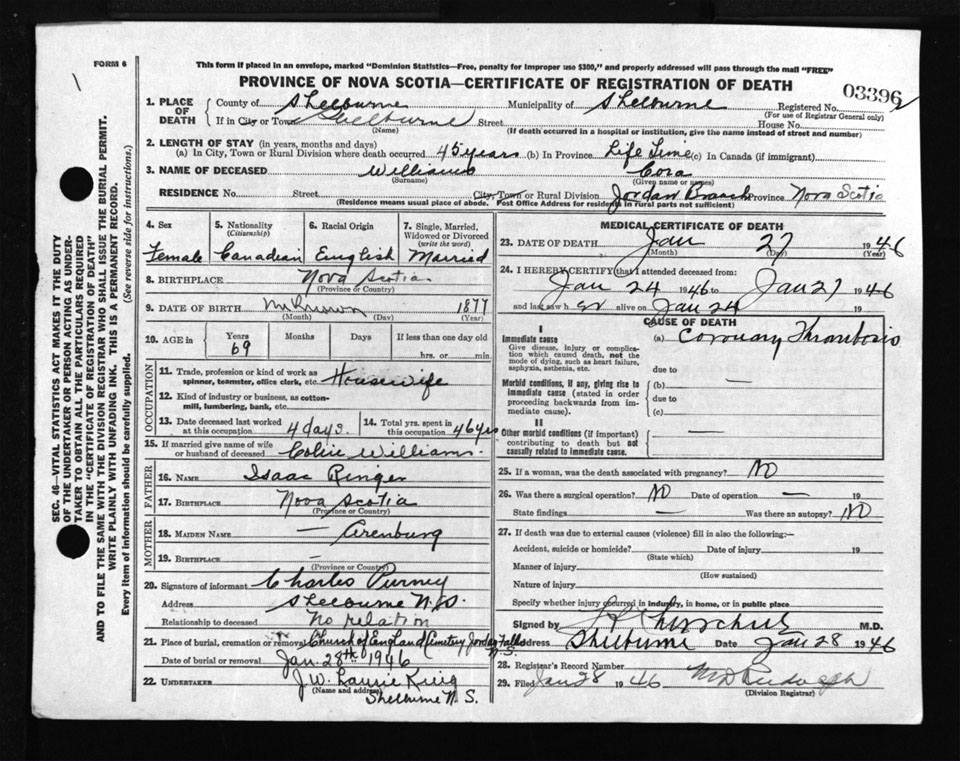 FORM 6
This form if placed in an envelope, marked "Dominion Statistics—Free, penalty for improper use $300," and properly addressed will pass through the mail "FREE"
PROVINCE OF NOVA SCOTIA—CERTIFICATE OF REGISTRATION OF DEATH
03396
1. PLACE OF DEATH
County of Shelburne Municipality of Shelburne Registered No.
(For use of Registrar General only)
If in City or Town Shelburne Street House No.
(Name) (If death occurred in a hospital or institution, give the name instead of street and number)
2. LENGTH OF STAY (in years, months and days)
(a) In City, Town or Rural Division where death occurred 45 years (b) In Province Life Time (c) In Canada (if immigrant)
3. NAME OF DECEASED Williams Cora
(Surname) (Given name or names)
RESIDENCE No. Street City, Town or Rural Division Jordan Branch Province Nova Scotia
(Residence means usual place of abode. Post Office Address for residents in rural parts not sufficient)
4. Sex
Female
5. Nationality
(Citizenship)
Canadian
6. Racial Origin
English
7. Single, Married, Widowed or Divorced
(write the word)
Married
8. BIRTHPLACE Nova Scotia
(Province or Country)
9. DATE OF BIRTH unknown 1877
(Month) (Day) (Year)
10. AGE in Years Months Days If less than one day old
69 hrs. or min.
OCCUPATION
11. Trade, profession or kind of work as
spinner, teamster, office clerk, etc. Housewife
12. Kind of industry or business, as cotton-
mill, lumbering, bank, etc.
13. Date deceased last worked
at this occupation 4 days.
14. Total yrs. spent in
this occupation 46 yrs
15. If married give name of wife
or husband of deceased Colin Williams.
FATHER
16. NAME Isaac Ringer
17. BIRTHPLACE Nova Scotia
(Province or Country)
MOTHER
18. MAIDEN NAME — Arenburg
19. BIRTHPLACE —
(Province or Country)
20. Signature of informant Charles Purney
Address Shelburne N.S.
Relationship to deceased No relation
21. Place of burial, cremation or removal Church of England Cemetery Jordan Falls N.S.
Date of burial or removal Jan. 28th 1946
22. UNDERTAKER J.W. Laurie King
(Name and address)
Shelburne N.S.
MEDICAL CERTIFICATE OF DEATH
23. DATE OF DEATH Jan 27 1946
(Month) (Day) (Year)
24. I HEREBY CERTIFY that I attended deceased from:
Jan 24 1946 to Jan 27 1946
and last saw h er alive on Jan 24 19
CAUSE OF DEATH
I
Immediate cause (a) Coronary Thrombosis
Give disease, injury or complica-
tion which caused death, not the
mode of dying, such as heart failure,
asphyxia, asthenia, etc. due to
Morbid conditions, if any, giving rise to (b) —
immediate cause (stated in order
proceeding backwards from im- due to
mediate cause). (c)
II
Other morbid conditions (if important) —
contributing to death but not
causally related to immediate cause.
25. If a woman, was the death associated with pregnancy? NO
26. Was there a surgical operation? NO Date of operation — 19
State findings — Was there an autopsy? NO
27. If death was due to external causes (violence) fill in also the following:—
Accident, suicide or homicide? Date of injury 19
(State which)
Manner of injury
(How sustained)
Nature of injury
Specify whether injury occurred in industry, in home, or in public place
Signed by M.D.
Address Shelburne Date Jan 28 1946
28. Registrar's Record Number
29. Filed Jan 28 1946
(Division Registrar)
SEC. 46—VITAL STATISTICS ACT MAKES IT THE DUTY
OF THE UNDERTAKER OR PERSON ACTING AS UNDER-
TAKER TO OBTAIN ALL THE PARTICULARS REQUIRED
IN THE "CERTIFICATE OF REGISTRATION OF DEATH"
AND TO FILE THE SAME WITH THE DIVISION REGISTRAR WHO SHALL ISSUE THE BURIAL PERMIT.
WRITE PLAINLY WITH UNFADING INK. THIS IS A PERMANENT RECORD.
Every item of information should be carefully supplied. (See reverse side for instructions.)